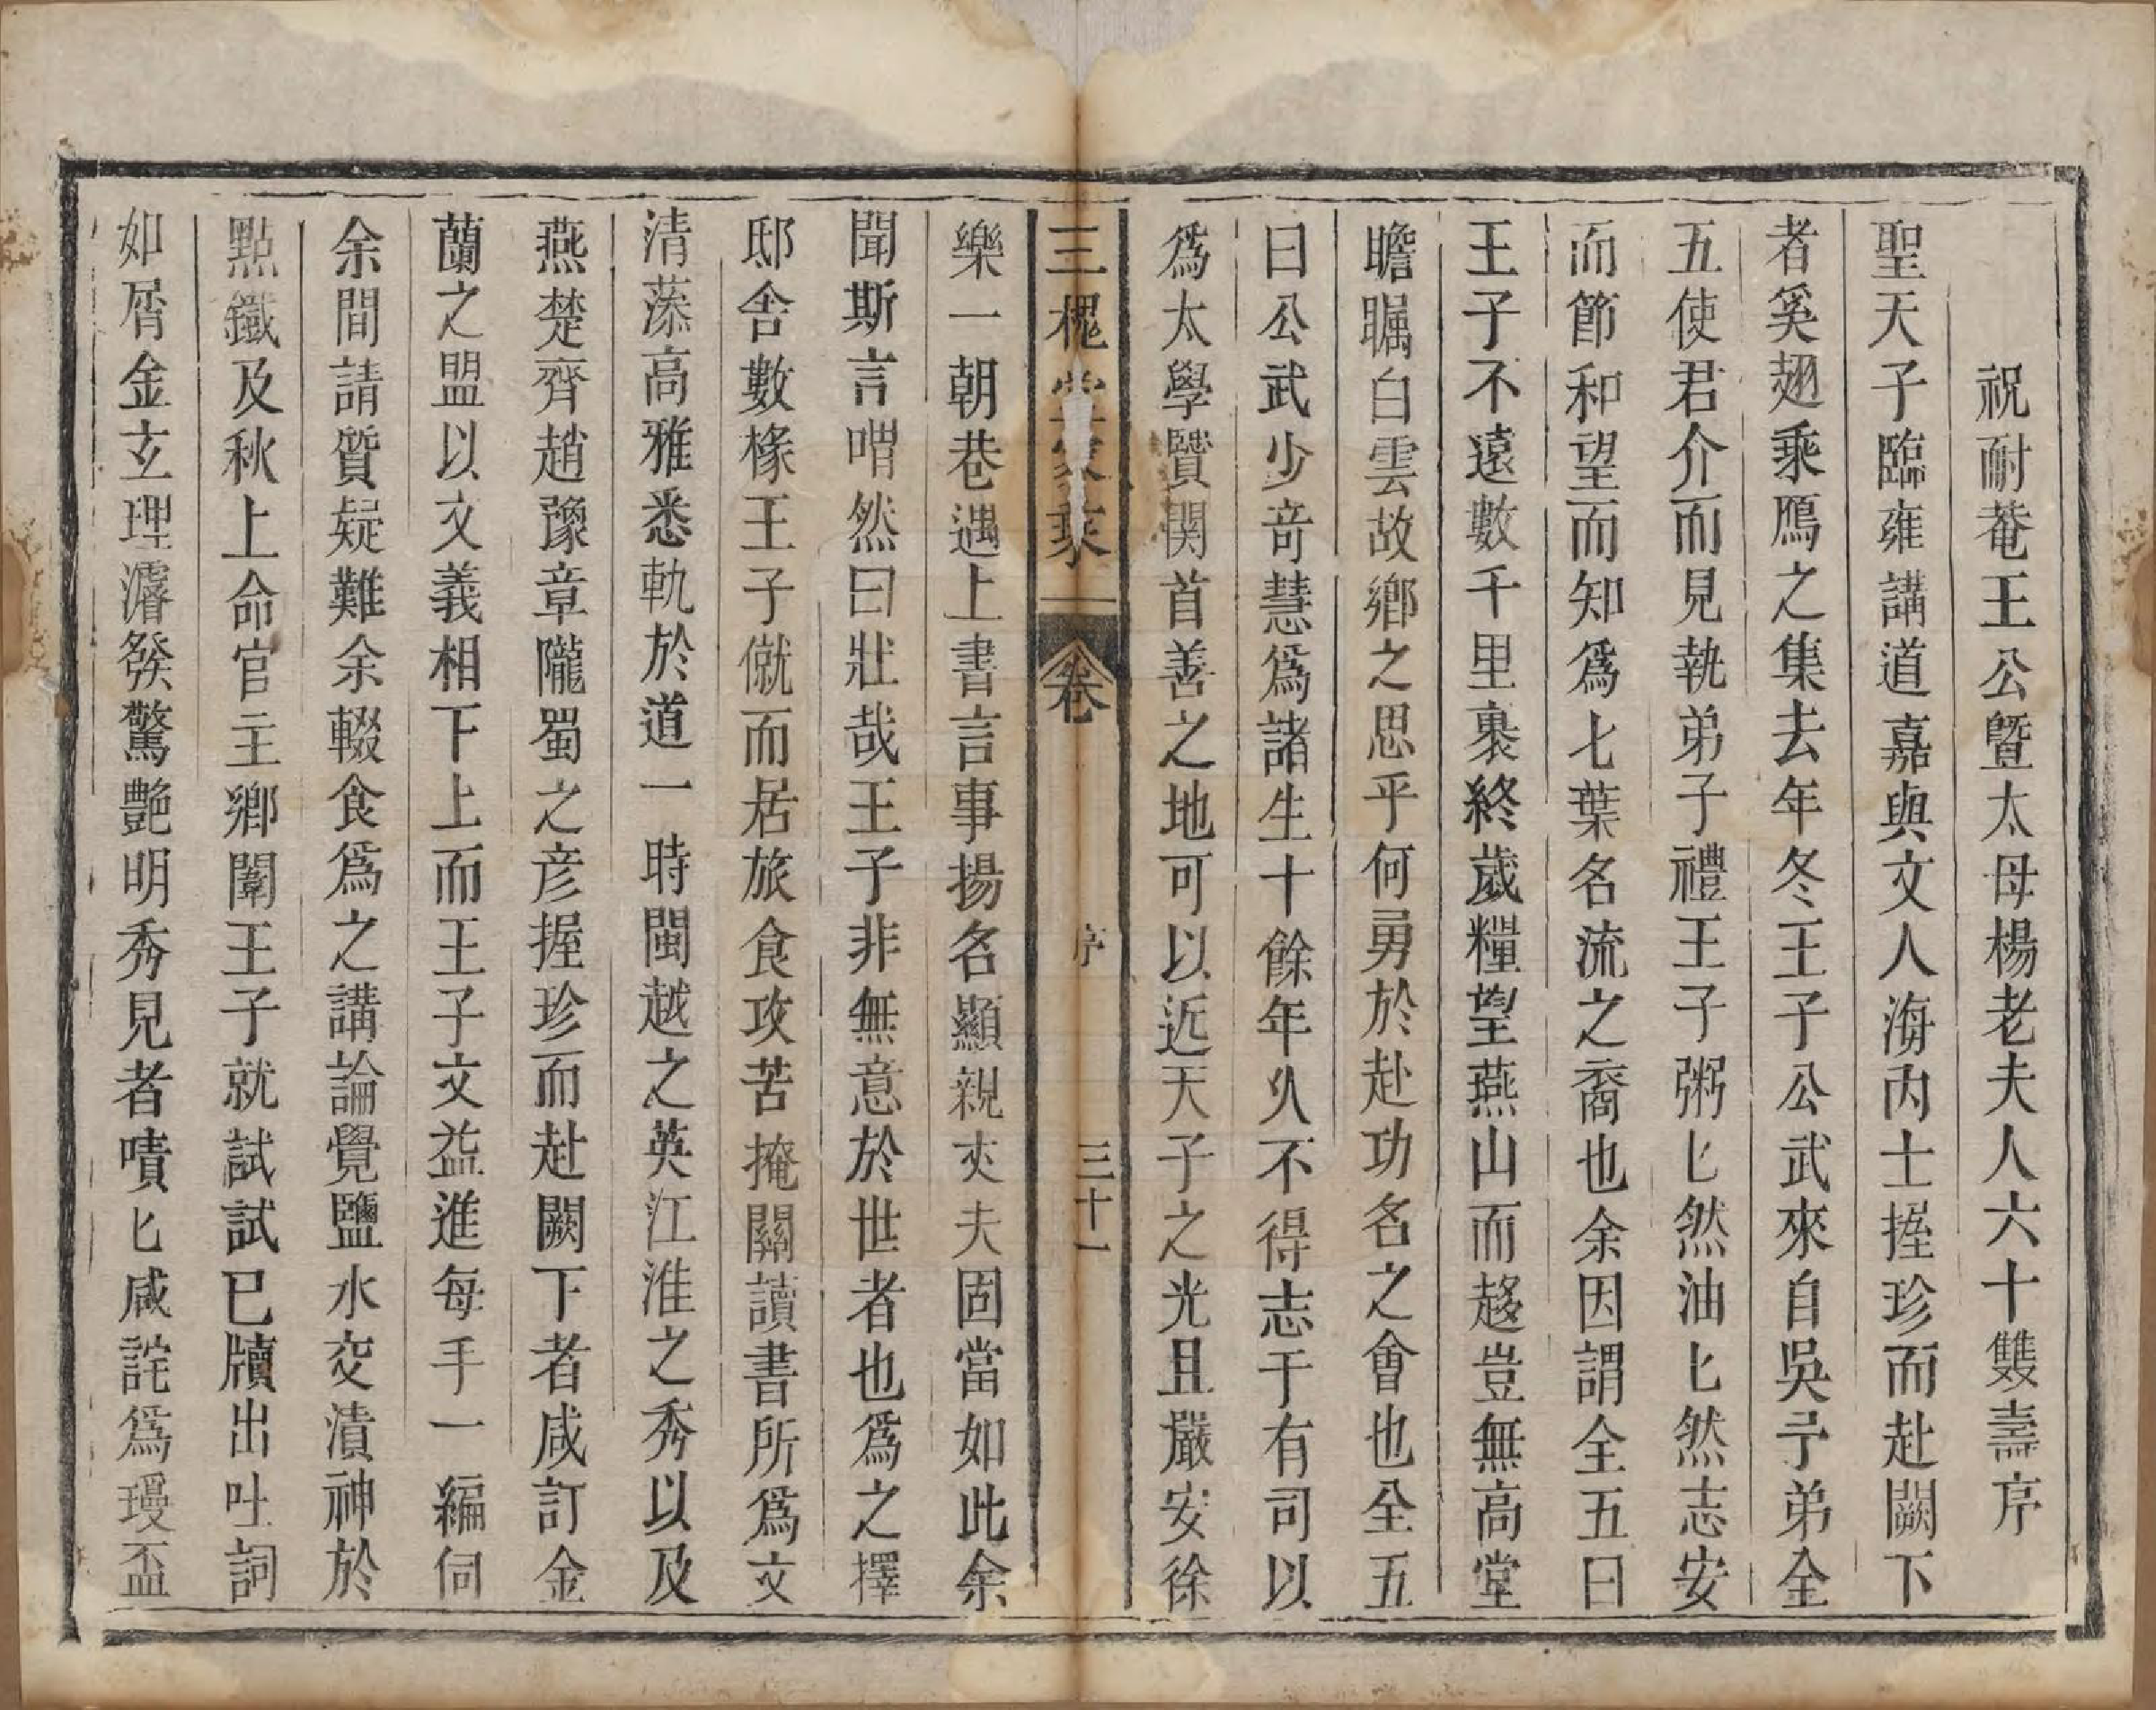 祝耐菴王公暨太母楊老夫人六十雙壽序
聖天子臨雍講道嘉與文人海內士握珍而赴闕下
者奚翅乘鴈之集去年冬王子公武來自吳予弟全
五使君介而見執弟子禮王子粥匕然油匕然志安
而節和望而知爲七葉名流之裔也余因謂全五曰
王子不遠數千里裹終歲糧望燕山而趍豈無高堂
瞻矚白雲故鄉之思乎何勇於赴功名之會也全五
曰公武少竒慧爲諸生十餘年乆不得志于有司以
爲太學賢関首善之地可以近天子之光且嚴安徐
三槐堂家乘
卷
序
三十一
樂一朝巷遇上書言事揚名顯親夾夫固當如此余
聞斯言喟然曰壯哉王子非無意於世者也爲之擇
邸舍數椽王子僦而居旅食攻苦掩關讀書所爲文
清蓀高雅悉軌於道一時閩越之英江淮之秀以及
燕楚齊趙豫章隴蜀之彦握珍而赴闕下者咸訂金
蘭之盟以文義相下上而王子文益進每手一編伺
余間請質疑難余輟食爲之講論覺鹽水交漬神於
點鐵及秋上命官主鄉闈王子就試試已牘出吐詞
如屑金玄理濬發驚艷明秀見者嘖匕咸詫爲瑷盃